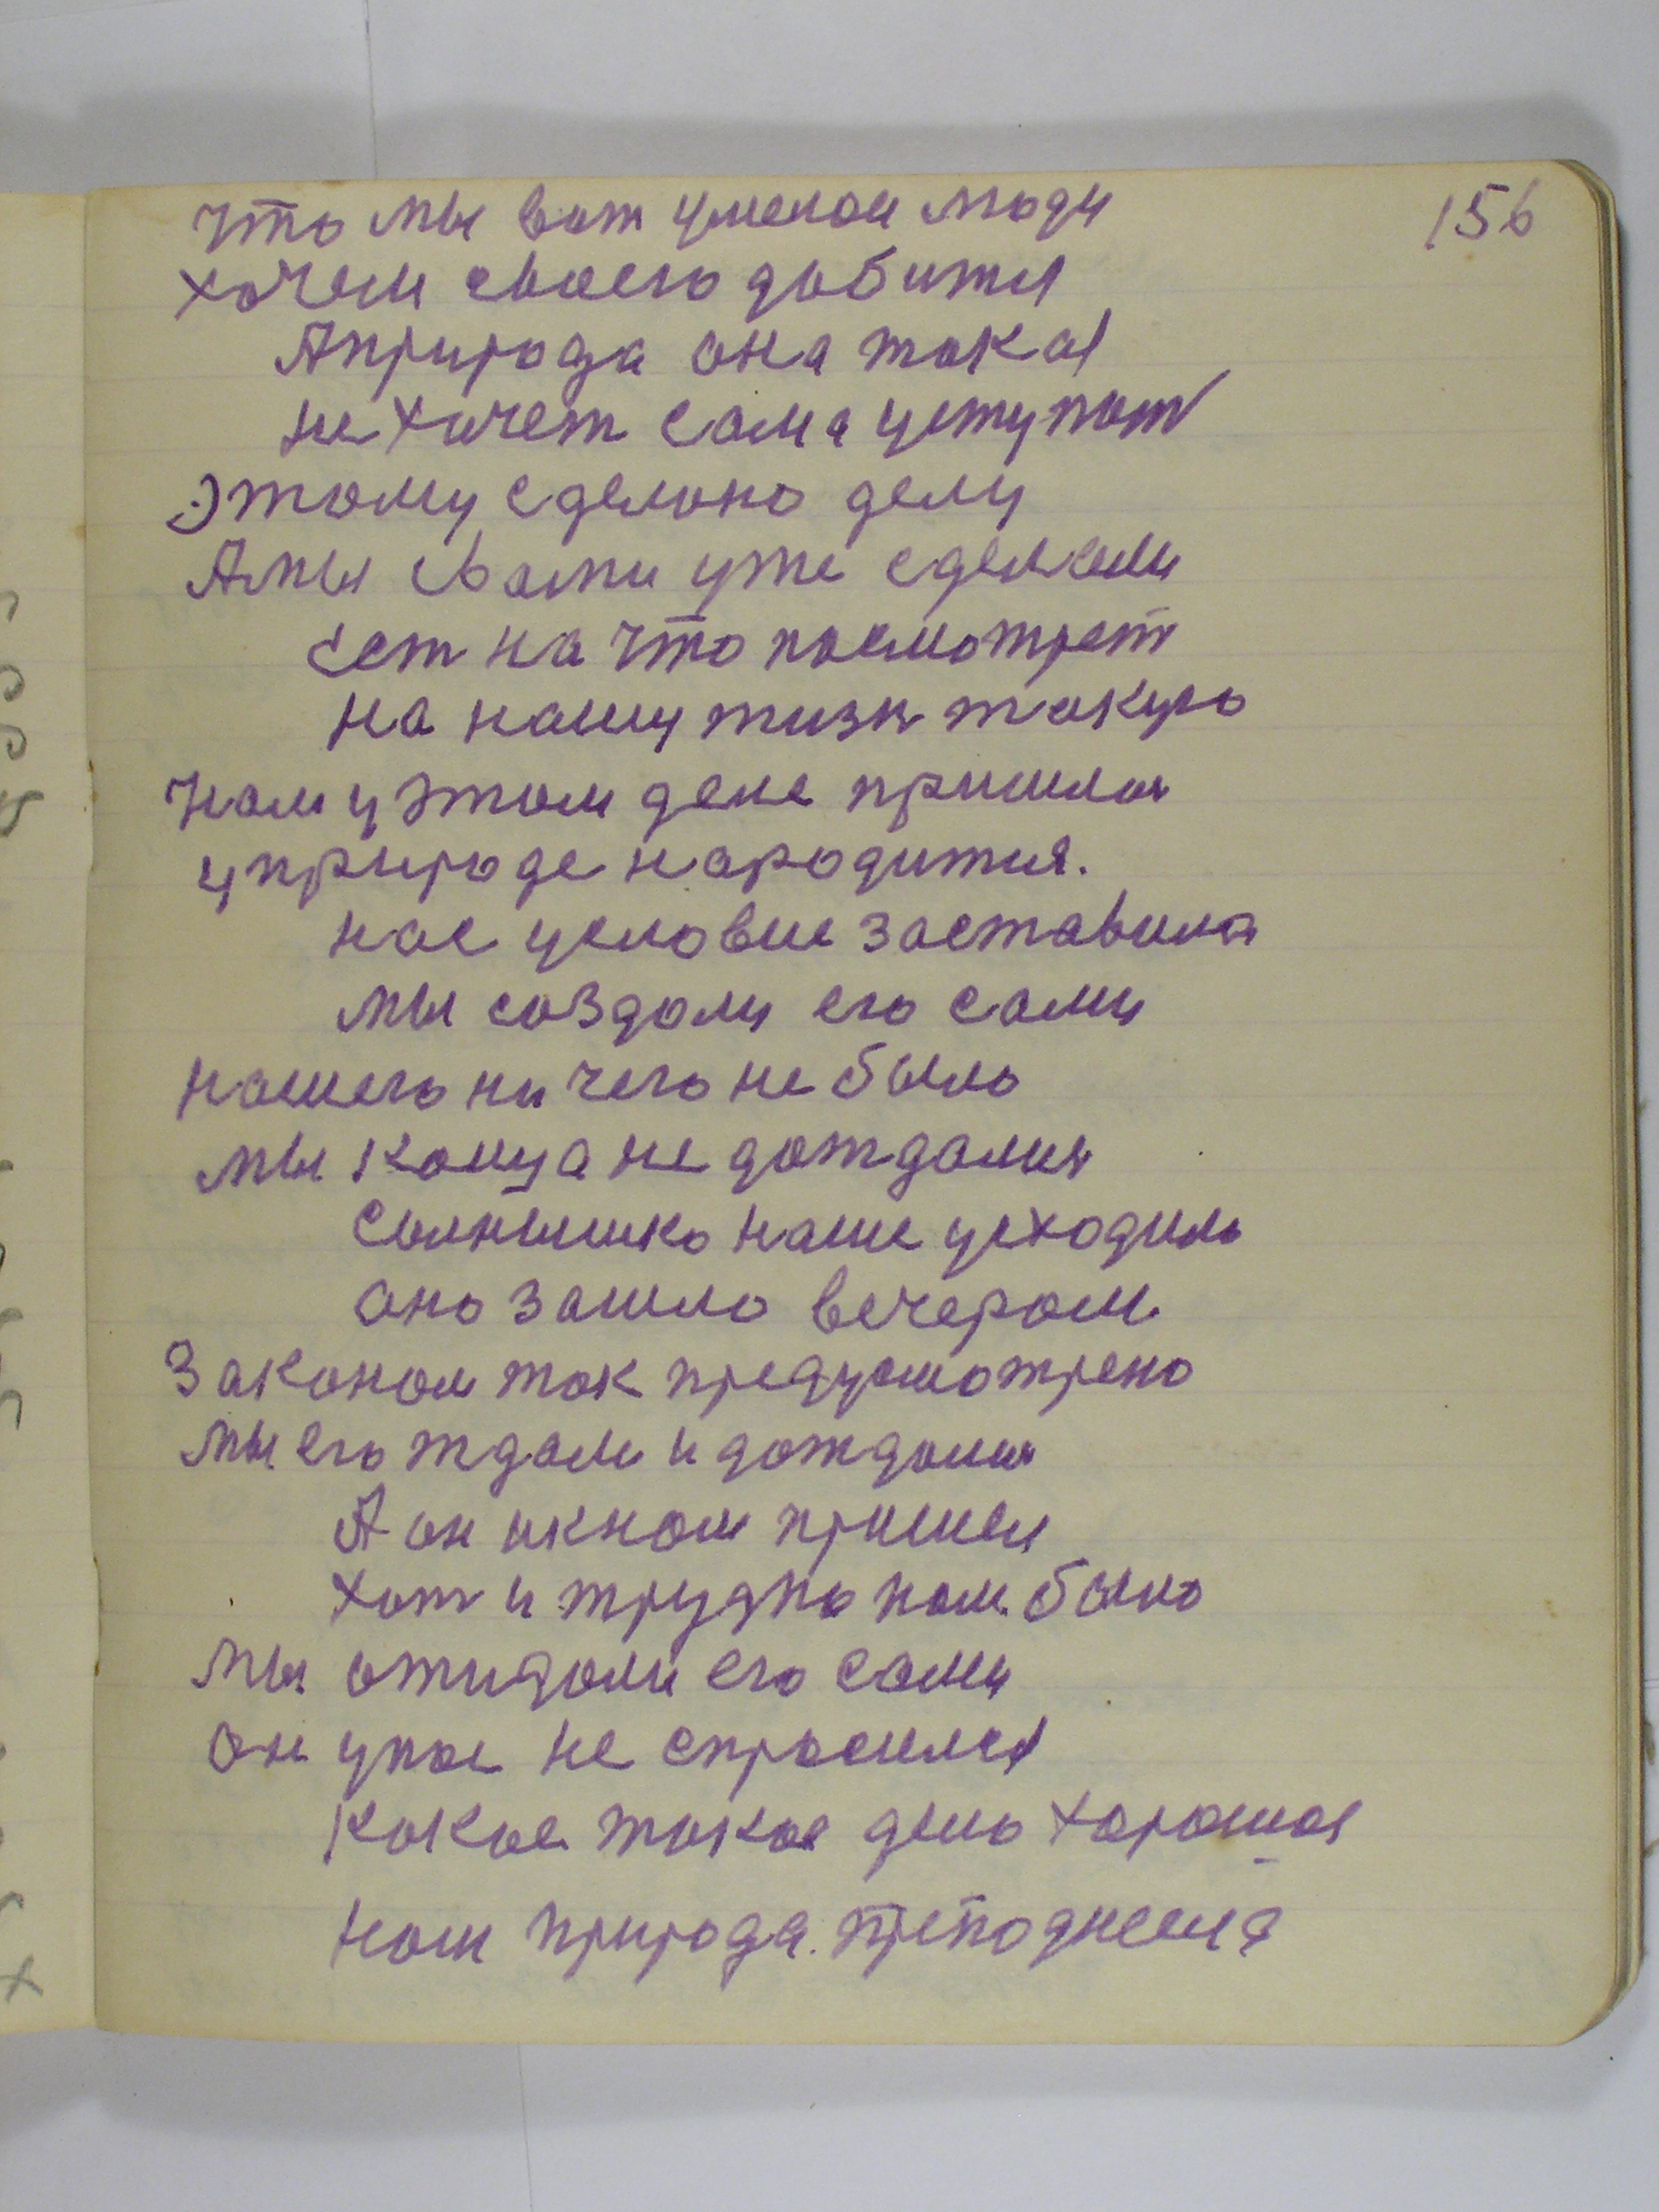 156
что мы вот умелаи люди
хочем своего добится
Априрода она такая
не хочет сама уступат
Этому сделано делу
Амы свами уже сделали
Ест на что посмотрет
на нашу жизн такую
Нам у этом деле пришлос
уприроде народится.
нас условие заставила
мы создали его сами
нашего ни чего не было
мы конца не дождалис
Солнышко наше усходило
оно зашло вечером
Законом так предусмотрено
мы его ждали и дождалис
А он икнам пришел
хот и трудно нам было
мы ожидали его сами
он унас не спросился
Какое такое дело хорошая
нам природа преподнесла